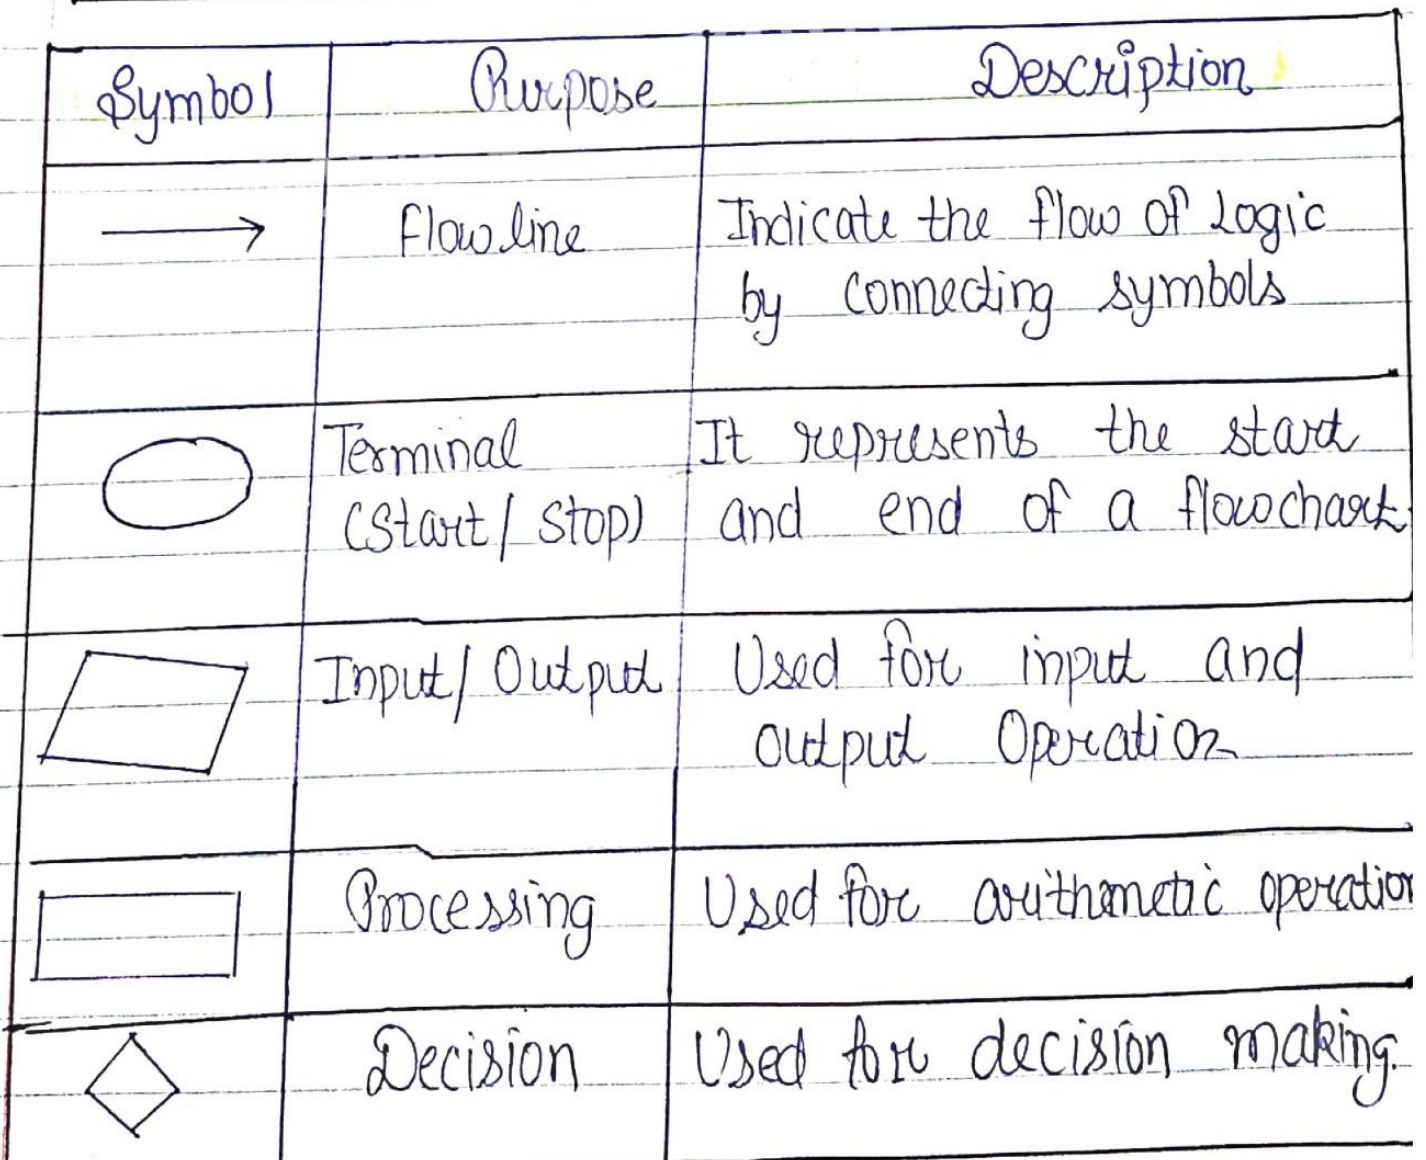 Symbol Purpose Description
flow line Indicate the flow of Logic
by connecting symbols
Terminal It represents the start
(Start/Stop) and end of a flowchart
Input/Output Used for input and
output Operation
Processing Used for arithmetic operation
Decision Used for decision making.